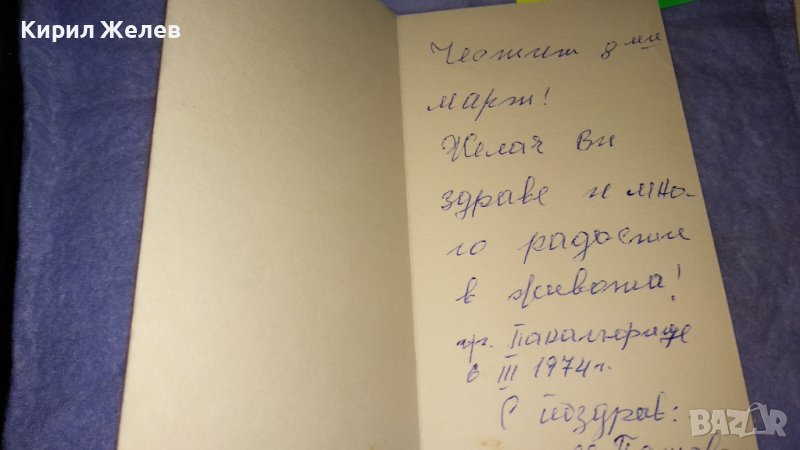 Кирил Желев
Честит 8 ми
март!
Желая Ви
здраве и мно-
го радости
в живота!
гр. Панагюрище
6 III 1974 г.
С поздрав:
BAZAR
bazar.bg